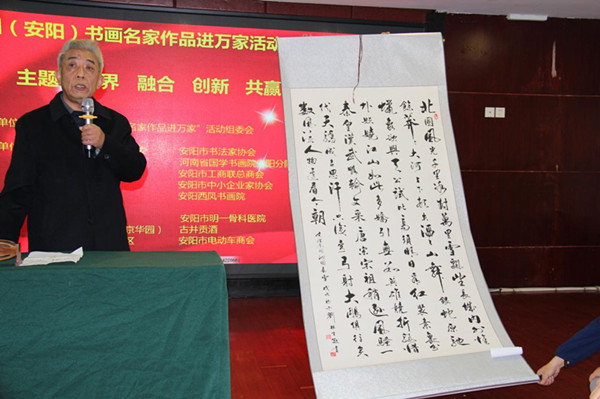 （安阳）书画名家作品进万家活动
主题 界 融合 创新 共赢
单位 名家作品进万家”活动组委会
安阳市书法家协会
河南省国学书画院 阳分
安阳市工商联总商会
安阳市中小企业家协会
安阳西风书画院
安阳市明一骨科医院
京华园） 古井贡酒
区 安阳市电动车商会
北国风光千里冰封万里雪飘望长城内外惟
馀莽莽大河上下顿失滔滔山舞银蛇原驰
蜡象欲与天公试比高须晴日看红装素裹分
外妖娆江山如此多娇引无数英雄竞折腰惜
秦皇汉武略输文采唐宗宋祖稍逊风骚一
代天骄成吉思汗只识弯弓射大雕俱往矣
数风流人物还看今朝